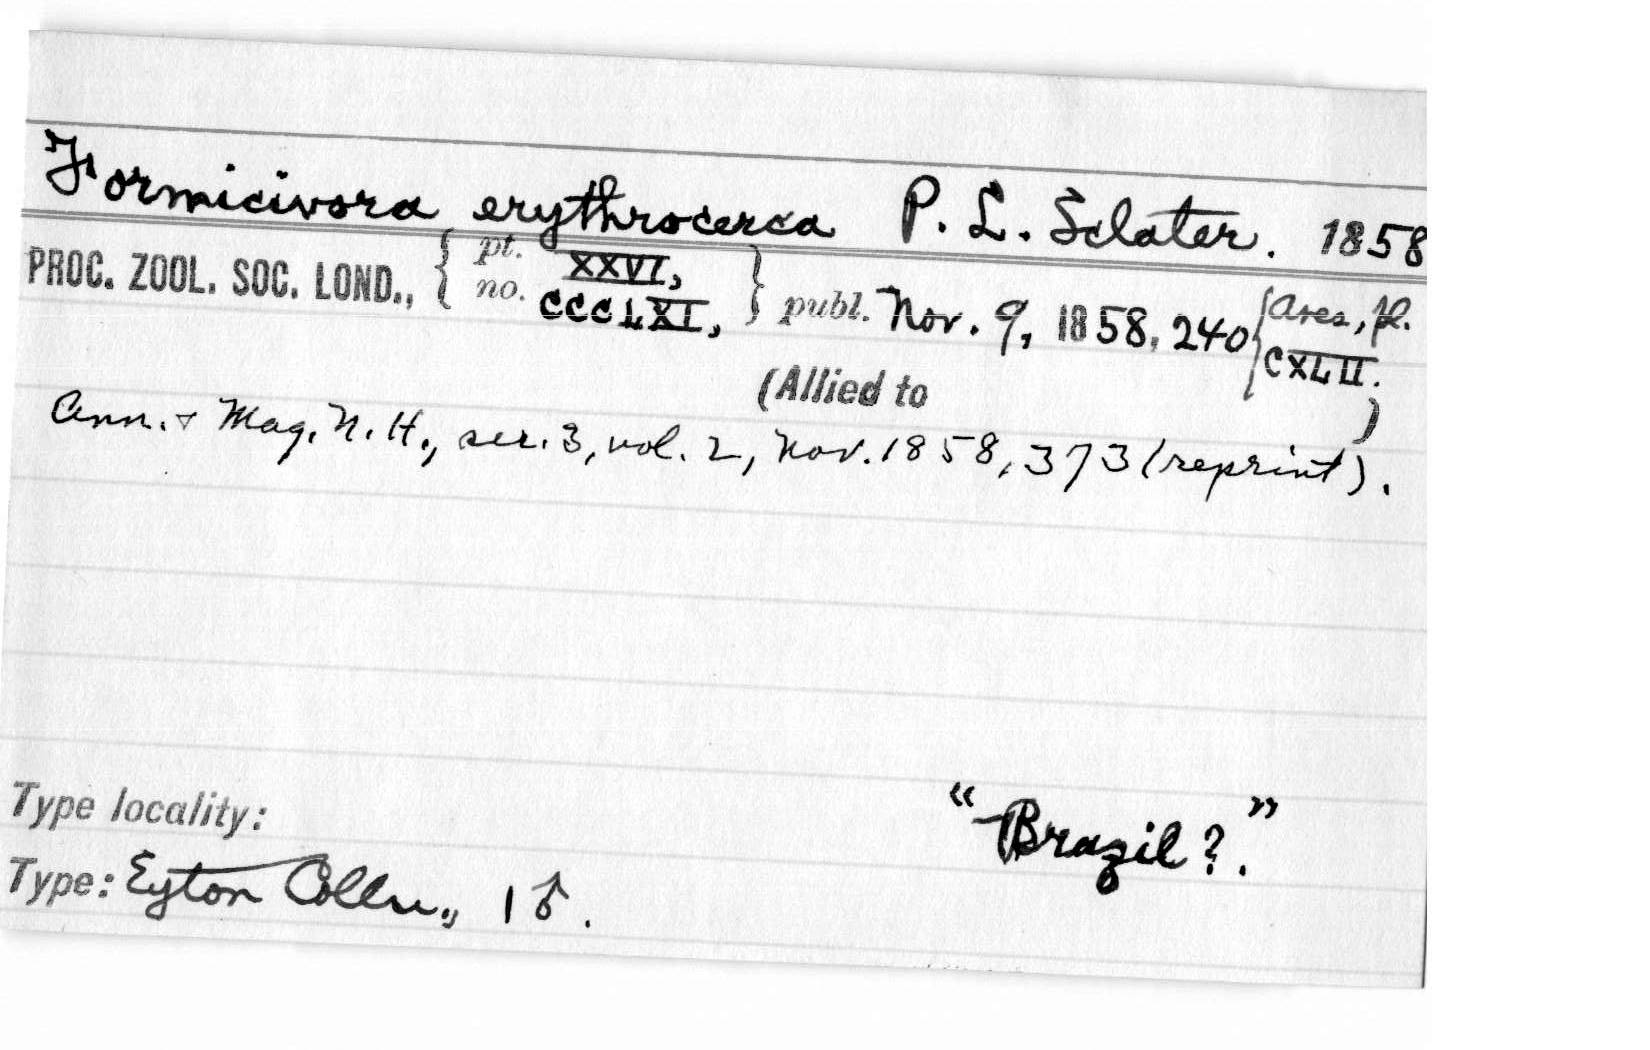 Formicivora erythrocerca P. L. Sclater. 1858
PROC. ZOOL. SOC. LOND., { pt. XXVI, no. CCCLXI, } publ. Nov. 9, 1858, 240 { Aves, pl. CXLII.
(Allied to )
Ann. & Mag. N. H., ser. 3, vol. 2, Nov. 1858, 373 (reprint).
Type locality: "Brazil?."
Type: Eyton Colln., 1 ♂.